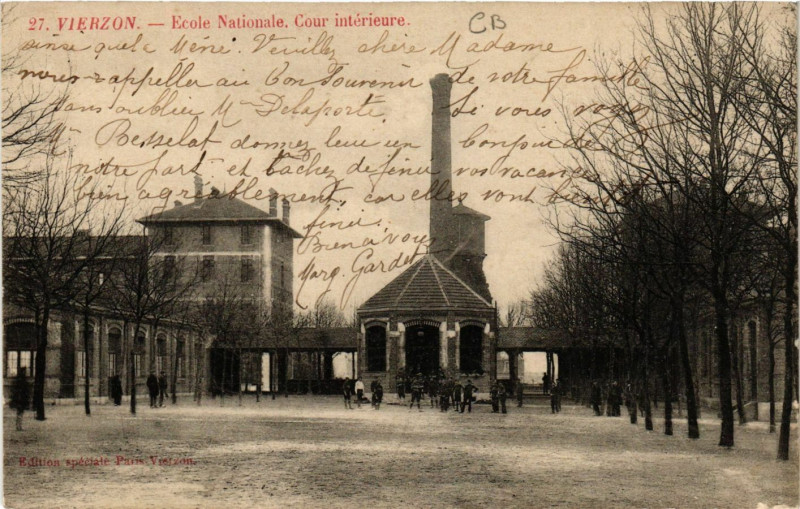 27. VIERZON. — Ecole Nationale. Cour intérieure.
CB
ainsi que la Méné. Veuillez chère Madame
nous rappeler au bon souvenir de votre famille
sans oublier Mme Delaporte. Si vous voyez
Mr Besselat donnez leur un bonjour de
notre part et tachez de finir vos vacances
bien agréablement, car elles vont bien
finir.
Bien à vous
Marg. Gardet
Edition spéciale Paris-Vierzon.